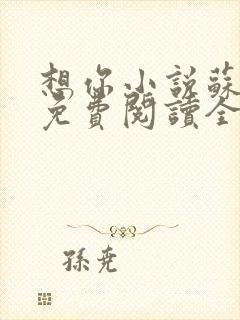 想你小說蘇
免費閱讀全
孫堯